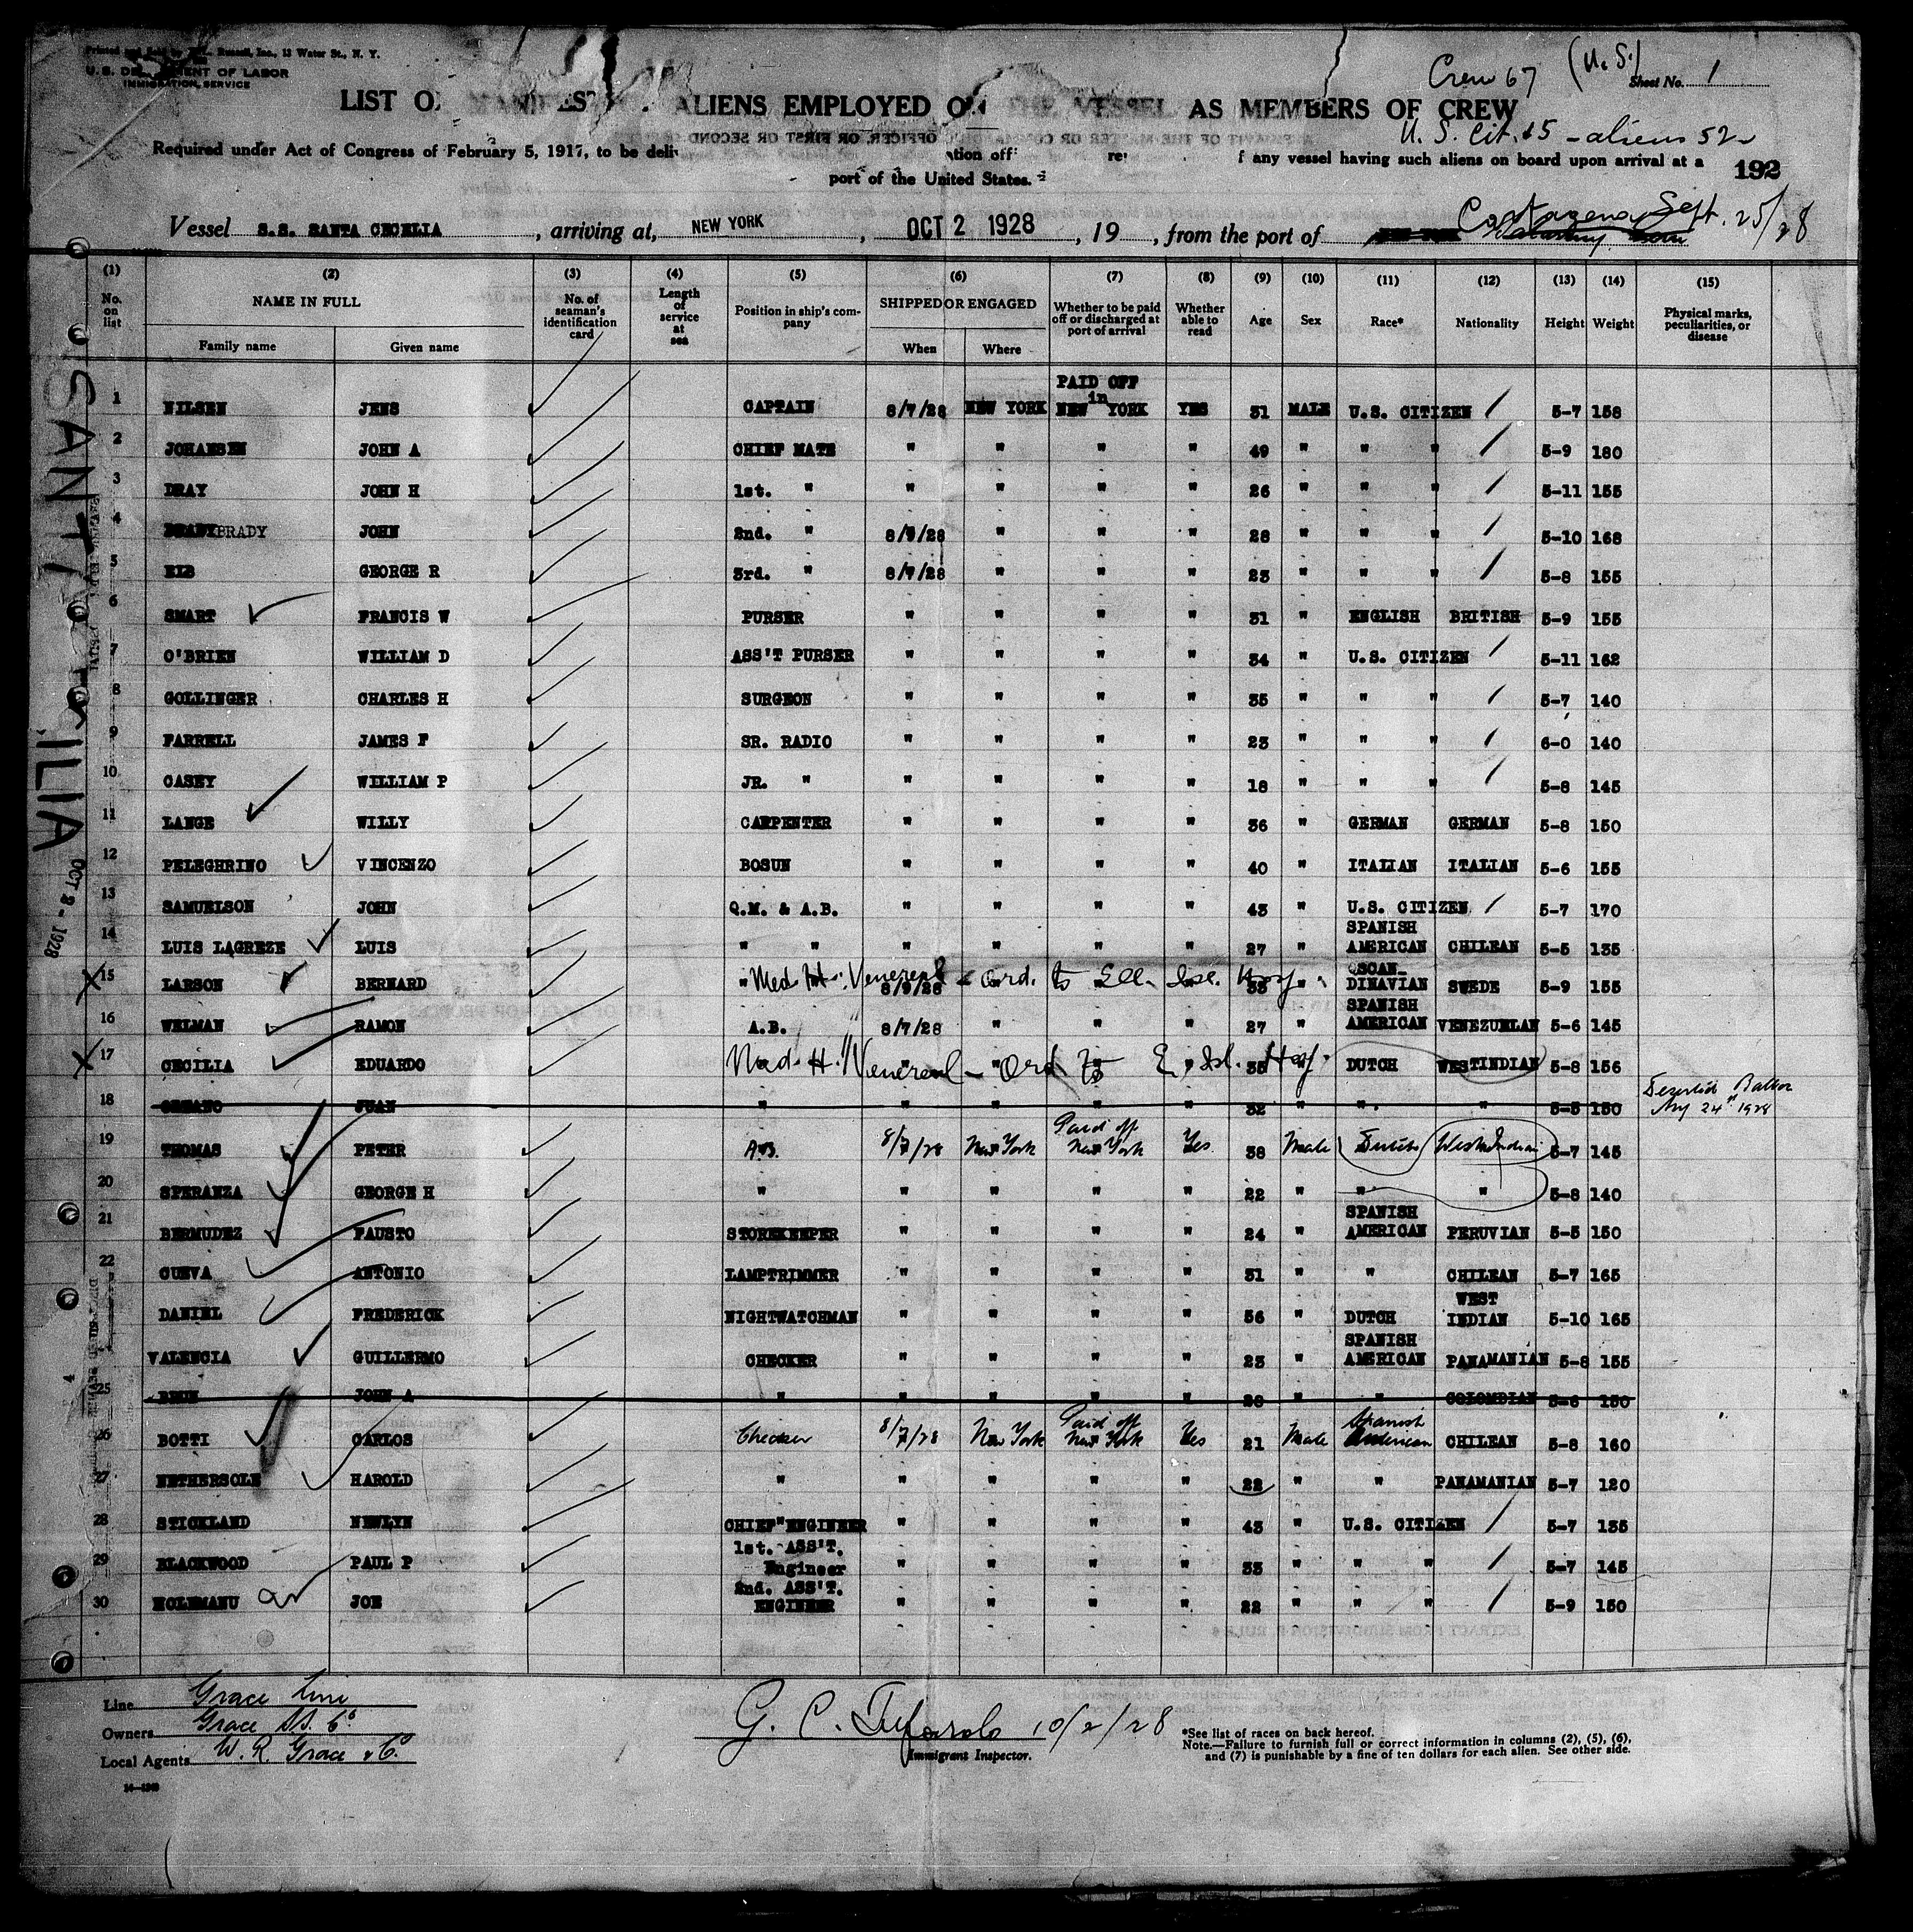 U.S. DEPARTMENT OF LABOR
IMMIGRATION SERVICE
Crew 67 (U.S.) Sheet No. 1
LIST OR MANIFEST OF ALIENS EMPLOYED ON THE VESSEL AS MEMBERS OF CREW
U.S. Cit. 15 - aliens 52
Required under Act of Congress of February 5, 1917, to be deli tion off re f any vessel having such aliens on board upon arrival at a
port of the United States. 192
Vessel S.S. SANTA CECELIA, arriving at, NEW YORK, OCT 2 1928, 19 , from the port of Cartagena, Sept. 25/28
(1) (2) (3) (4) (5) (6) (7) (8) (9) (10) (11) (12) (13) (14) (15)
No. on list NAME IN FULL Family name Given name No. of seaman's identification card Length of service at sea Position in ship's company SHIPPED OR ENGAGED When Where Whether to be paid off or discharged at port of arrival Whether able to read Age Sex Race* Nationality Height Weight Physical marks, peculiarities, or disease
1 NILSEN JENS CAPTAIN 8/7/28 NEW YORK PAID OFF in NEW YORK YES 31 MALE U.S. CITIZEN 5-7 158
2 JOHANSEN JOHN A CHIEF MATE " " " " 49 " " " 5-9 180
3 DRAY JOHN H 1st. " " " " " 26 " " " 5-11 155
4 BRADY JOHN 2nd. " 8/9/28 " " " 28 " " " 5-10 168
5 ELS GEORGE R 3rd. " 8/7/28 " " " 23 " " " 5-8 155
6 SMART FRANCIS W PURSER " " " " 31 " ENGLISH BRITISH 5-9 155
7 O'BRIEN WILLIAM D ASS'T PURSER " " " " 34 " U.S. CITIZEN 5-11 162
8 GOLLINGER CHARLES H SURGEON " " " " 35 " " " 5-7 140
9 FARRELL JAMES F SR. RADIO " " " " 23 " " " 6-0 140
10 CASEY WILLIAM P JR. " " " " " 18 " " " 5-8 145
11 LANGE WILLY CARPENTER " " " " 36 " GERMAN GERMAN 5-8 150
12 PELEGHRINO VINCENZO BOSUN " " " " 40 " ITALIAN ITALIAN 5-6 155
13 SAMUELSON JOHN Q.M. & A.B. " " " " 43 " U.S. CITIZEN 5-7 170
14 LUIS LAGREZE LUIS " " " " " " 27 " SPANISH AMERICAN CHILEAN 5-5 135
15 LARSON BERNARD " Med. H. Venereal - ord. to Ell. Isl. Hosp. 8/9/28 33 " SCANDINAVIAN SWEDE 5-9 155
16 WELMAN RAMON A.B. 8/7/28 " " " 27 " SPANISH AMERICAN VENEZUELAN 5-6 145
17 CECILIA EDUARDO Med. H. Venereal - Ord to E. Isl. Hosp. 35 " DUTCH WESTINDIAN 5-8 156
18 JUAN " " " " " 32 " " " 5-5 150 Deserted Balboa Aug 24th 1928
19 THOMAS PETER A.B. 8/7/28 New York Paid off New York Yes 38 Male Dutch West Indian 5-7 145
20 SPERANZA GEORGE H " " " " " 22 " " " 5-8 140
21 BERMUDEZ FAUSTO STOREKEEPER " " " " 24 " SPANISH AMERICAN PERUVIAN 5-5 150
22 CUEVA ANTONIO LAMPTRIMMER " " " " 31 " " CHILEAN 5-7 165
DANIEL FREDERICK NIGHTWATCHMAN " " " " 56 " DUTCH WEST INDIAN 5-10 165
VALENCIA GUILLERMO CHECKER " " " " 23 " SPANISH AMERICAN PANAMANIAN 5-8 155
25 JOHN A " " " " " " " COLOMBIAN 5-6 150
26 BOTTI CARLOS Checker 8/7/28 New York Paid off New York Yes 21 Male Spanish American CHILEAN 5-8 160
27 NETHERSOLE HAROLD " " " " " 22 " " PANAMANIAN 5-7 120
28 STICKLAND NEWLYN CHIEF ENGINEER " " " " 43 " U.S. CITIZEN 5-7 135
29 BLACKWOOD PAUL P 1st. ASS'T. Engineer " " " " 33 " " " 5-7 145
30 HOLEMANU JOE 2nd. ASS'T. ENGINEER " " " " 22 " " " 5-9 150
SANT ILIA
OCT 2 - 1928
Line Grace Line
Owners Grace SS. Co
Local Agents W. R. Grace & Co.
G. C. 10/2/28
Immigrant Inspector.
*See list of races on back hereof.
Note.—Failure to furnish full or correct information in columns (2), (5), (6),
and (7) is punishable by a fine of ten dollars for each alien. See other side.